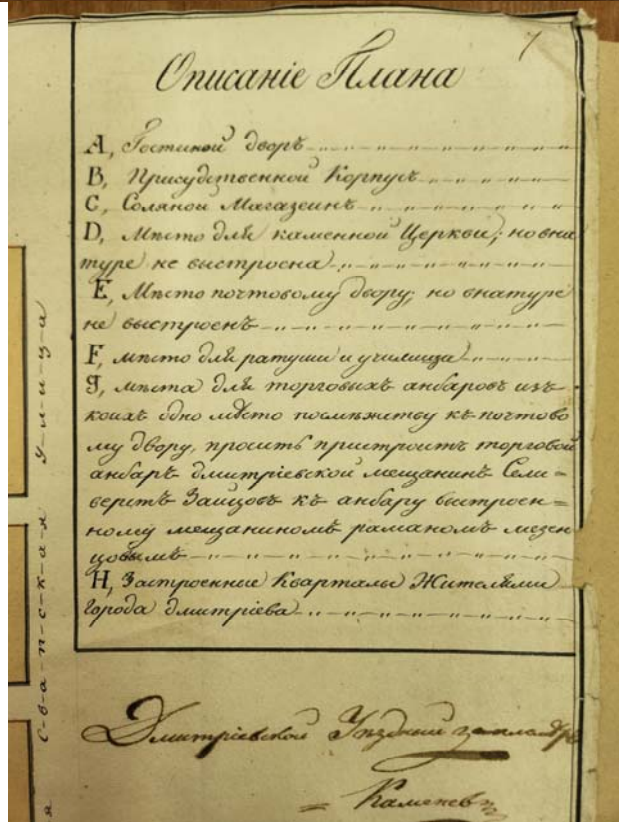 7
Описаніе Плана
A, Гостиной дворъ
B, Присудственной Корпусъ
C, Соляной Магазеинъ
D, Мѣсто для каменной Церкви; но вна
туре не выстроена
E, Мѣсто почтовому двору; но внатуре
не выстроенъ
F, мѣсто для ратуши и училища
G, мѣста для торговыхъ анбаровъ изъ
коихъ одно мѣсто посмѣжству къ почтово
му двору, проситъ пристроить торговой
анбаръ дмитріевской мещанинъ Сели=
верстъ Заицовъ къ анбару выстроен=
ному мещаниномъ раманомъ мезен
цовымъ
H, Застроенные Кварталы Жителями
Города дмитріева
Дмитріевской Уѣздный землемѣръ
= Каменевъ
С-в-а-п-с-к-а-я У-л-и-ц-а